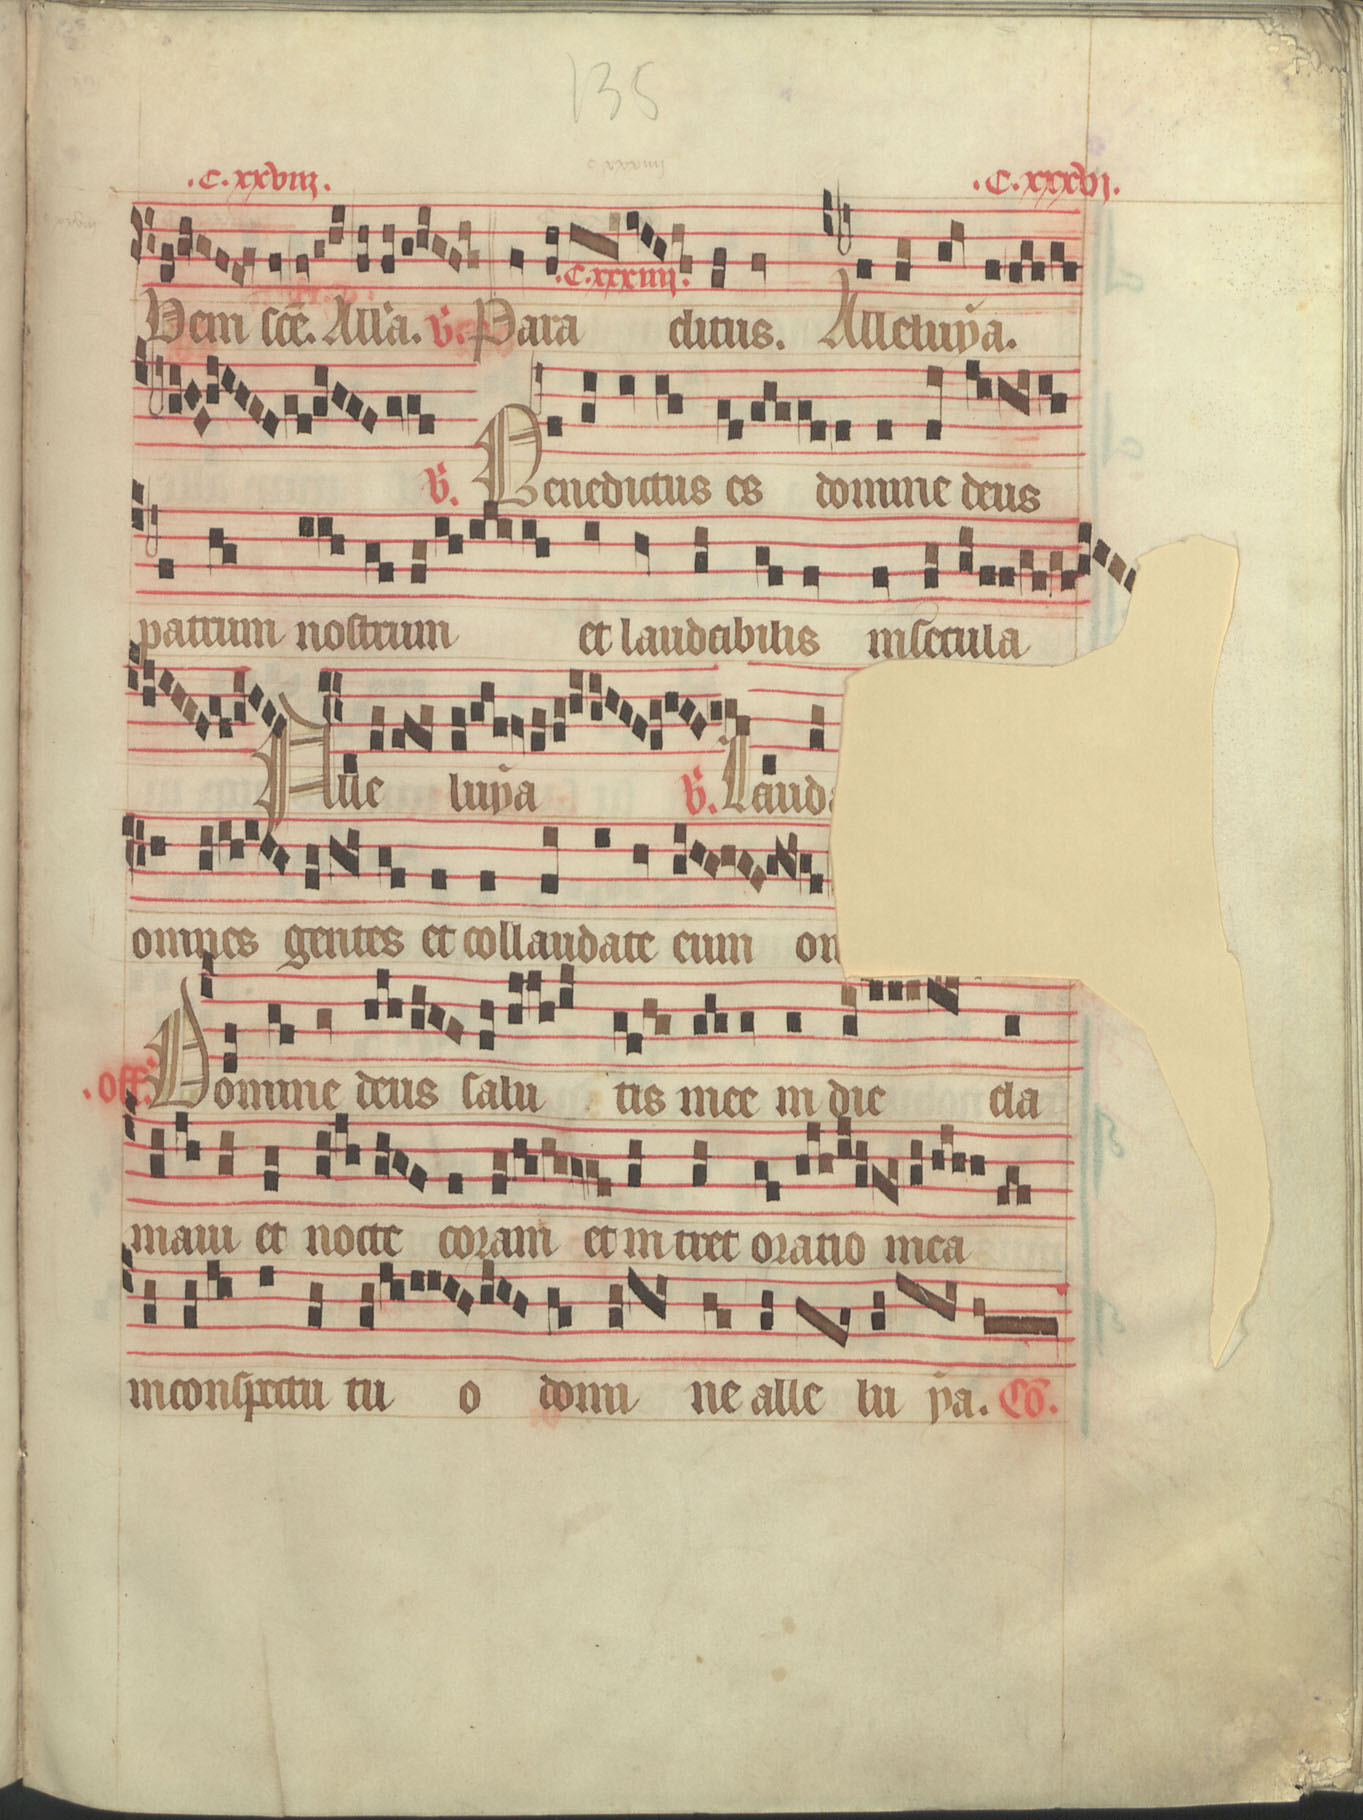 135
.c.xxviij. .c.xxxvj.
.c.xxxiiij.
Veni sc̄e. All'a. V. Para clitus. Alleluya.
V. Benedictus es domine deus
patrum nostrum et laudabilis in secula
Alle luya V. Lauda
omnes gentes et collaudate eum om
.Off. Domine deus salu tis mee in die cla
maui et nocte coram et intret oratio mea
in conspectu tu o domi ne alle lu ya. Cō.